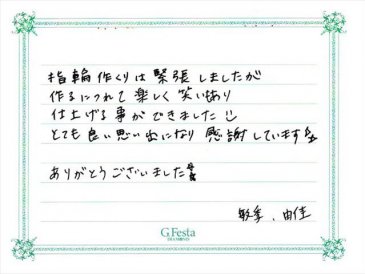 指輪作くりは緊張しましたが
作るにつれて楽しく笑いあり
仕上げる事ができました
とても良い思い出になり感謝しています
ありがとうございました
由佳
G.Festa
DIAMOND